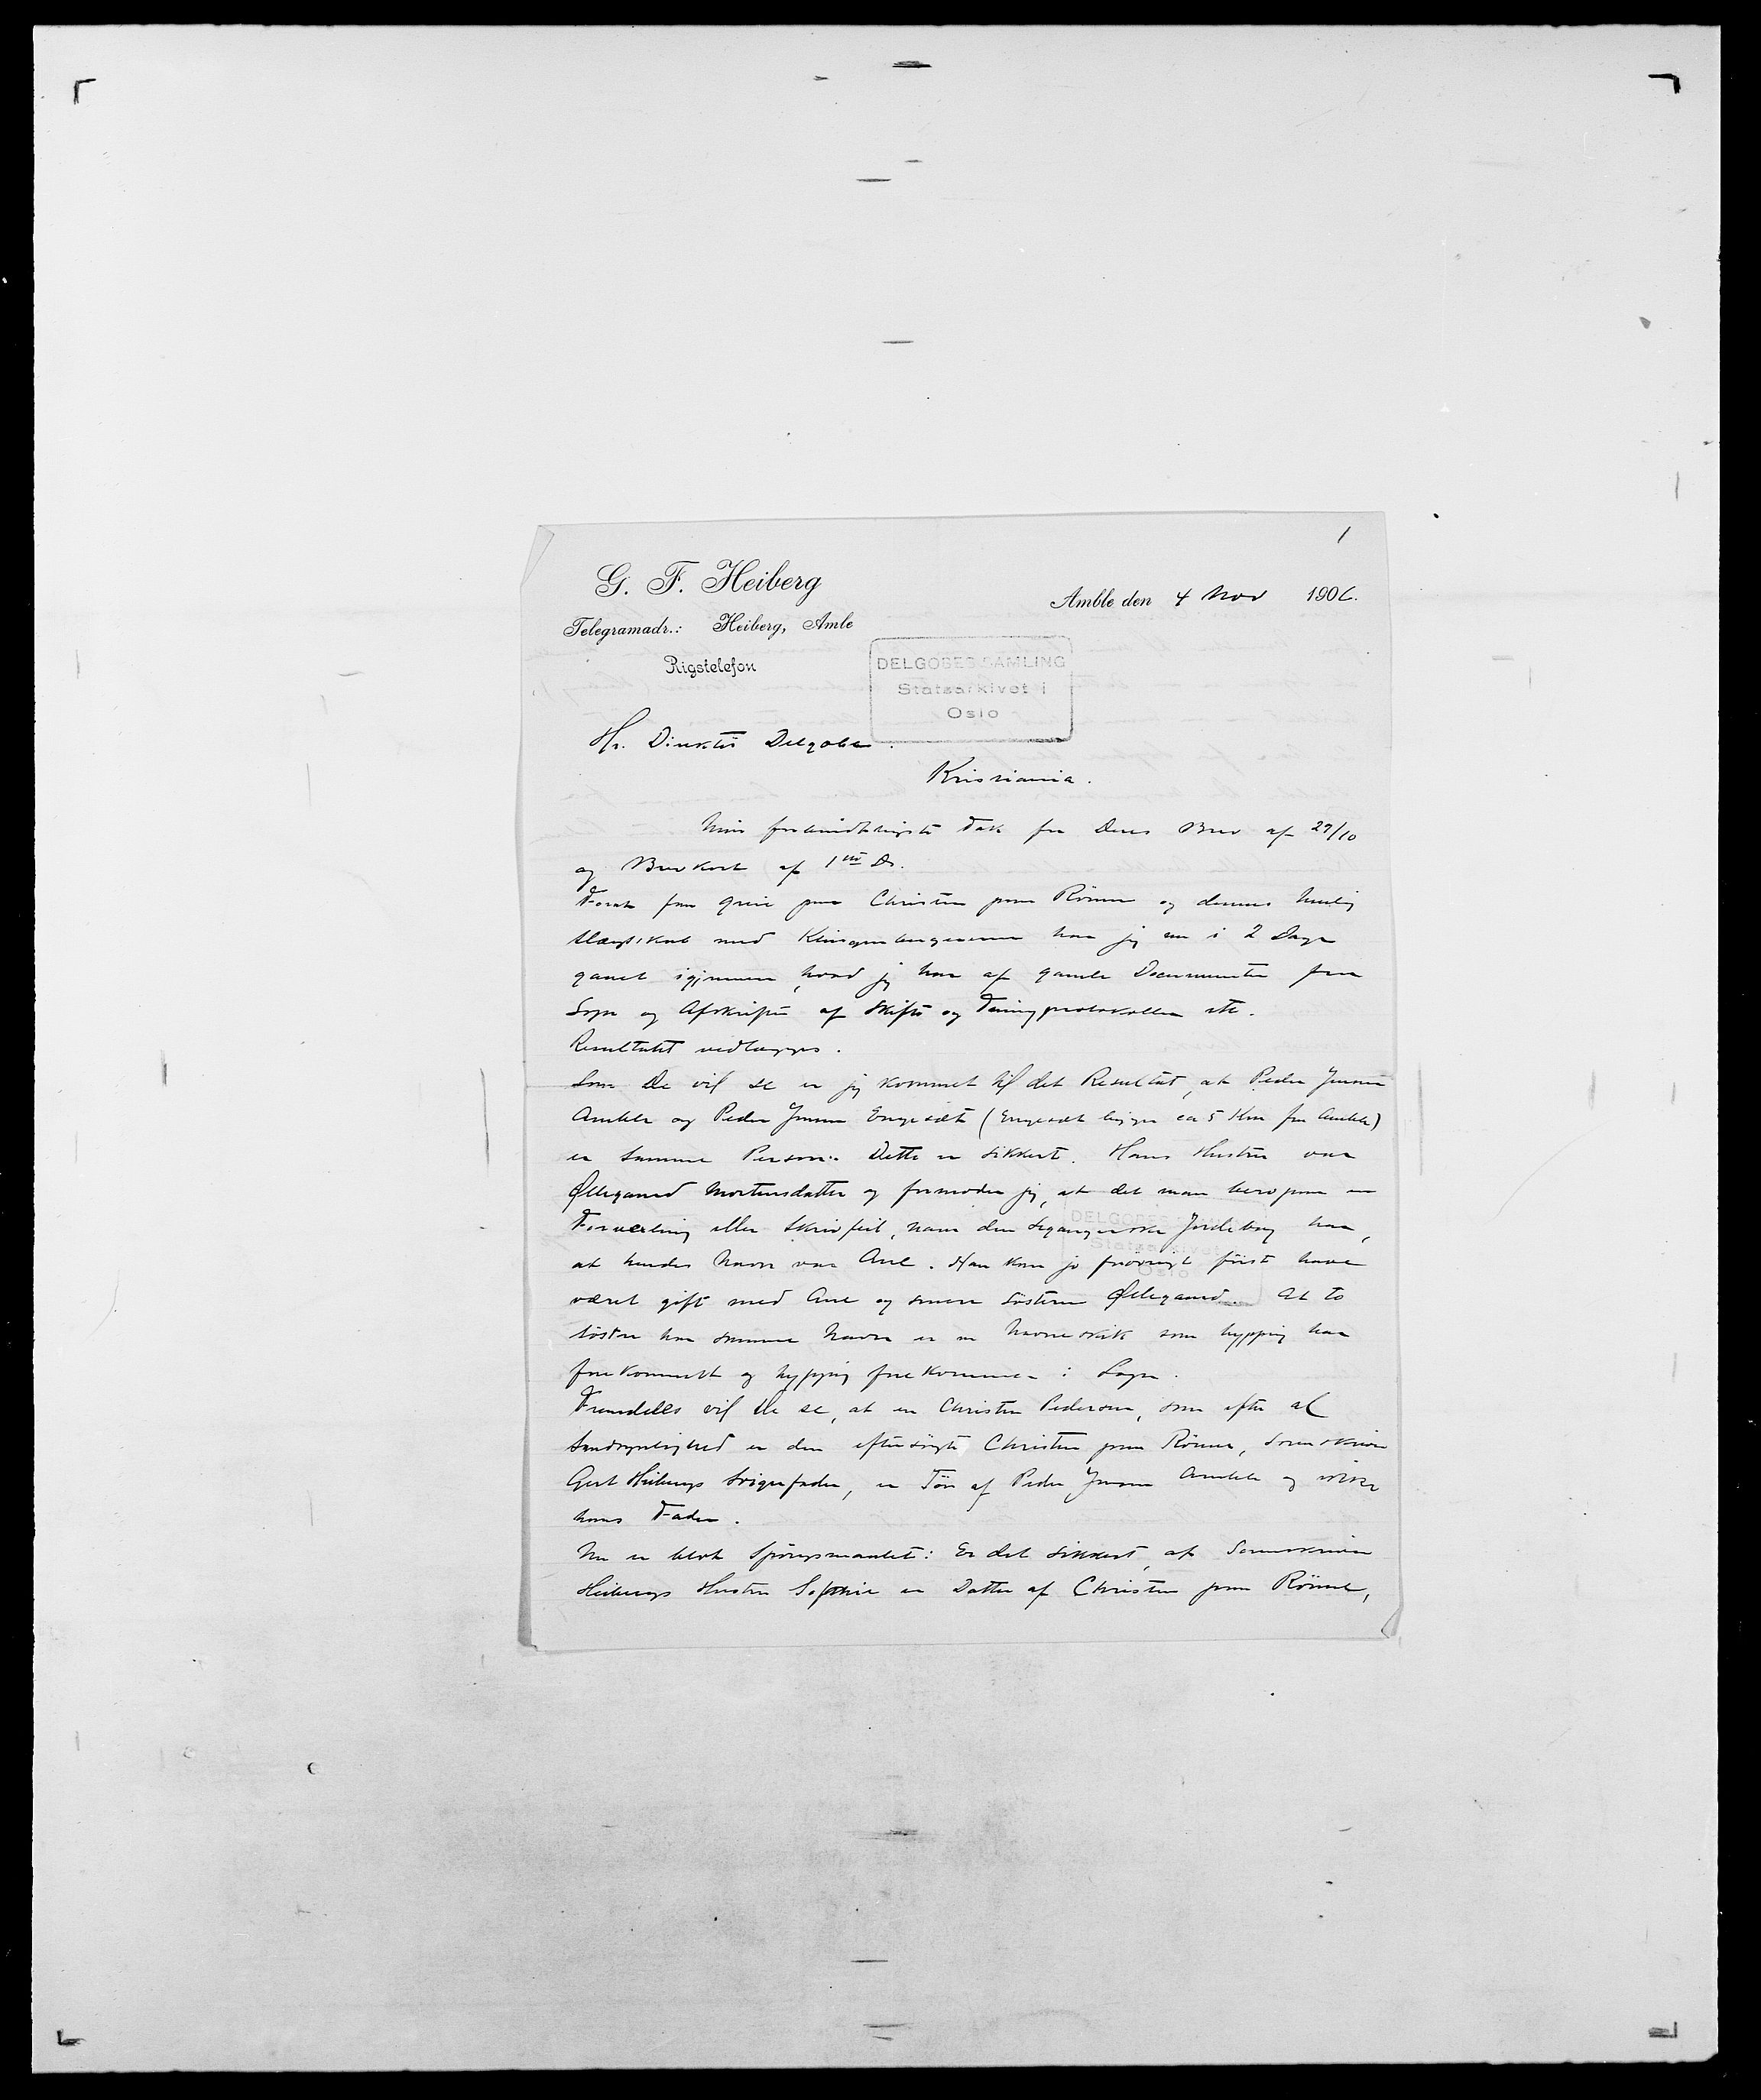 1
G. F. Heiberg
Amble den 4 Nov 1906.
Telegramadr.: Heiberg, Amle
Rigstelefon
DELGOBES SAMLING
Statsarkivet i
Oslo
Hr. Direktör Delgobe.
Kristiania.
Min forbindtligste Tak for Deres Brev af 29/10
og Brevkort af 1ste Ds.
Forat faa greie paa Christen paa Rönne og dennes
Slægtskab med har jeg nu i 2 Dage
gaaet igjennem, hvad jeg har af gamle Documenter fra
Sogn og Afskrifter af Skifte og Thingprotokoller etc.
Resultatet vedlægges.
Som De vil se er jeg kommet til det Resultat, at Peder Jensen
Amble og Peder Jensen Engesæt (Engesæt ligger ca 5 Km fra Amble)
er samme Person. Dette er sikkert. Hans Hustru var
Øllegaard Mortensdatter og formoder jeg, at det maa bero paa en
Forvexling eller Skrivfeil, naar den Jordebog har,
at hendes Navn var Ane. Han kan jo forövrigt först have
været gift med Ane og senere Söstren Øllegaard. At to
Söstre har samme Navn er en Navneskik som hyppig har
forekommet og hyppig forekommer i Sogn.
Fremdeles vil De se, at en Christen Pedersen, som efter al
Sandsynlighed er den eftersögte Christen paa Rönne, Sorenskriver
Gert Heibergs Svigerfader, er Sön af Peder Jensen Amble og ikke
hans Fader.
Nu er blot Spörgsmaalet: Er det sikkert, at Sorenskriver
Heibergs Hustru Sophie er Datter af Christen paa Rönne,
DELGOBES SAMLING
Statsarkivet i
Oslo